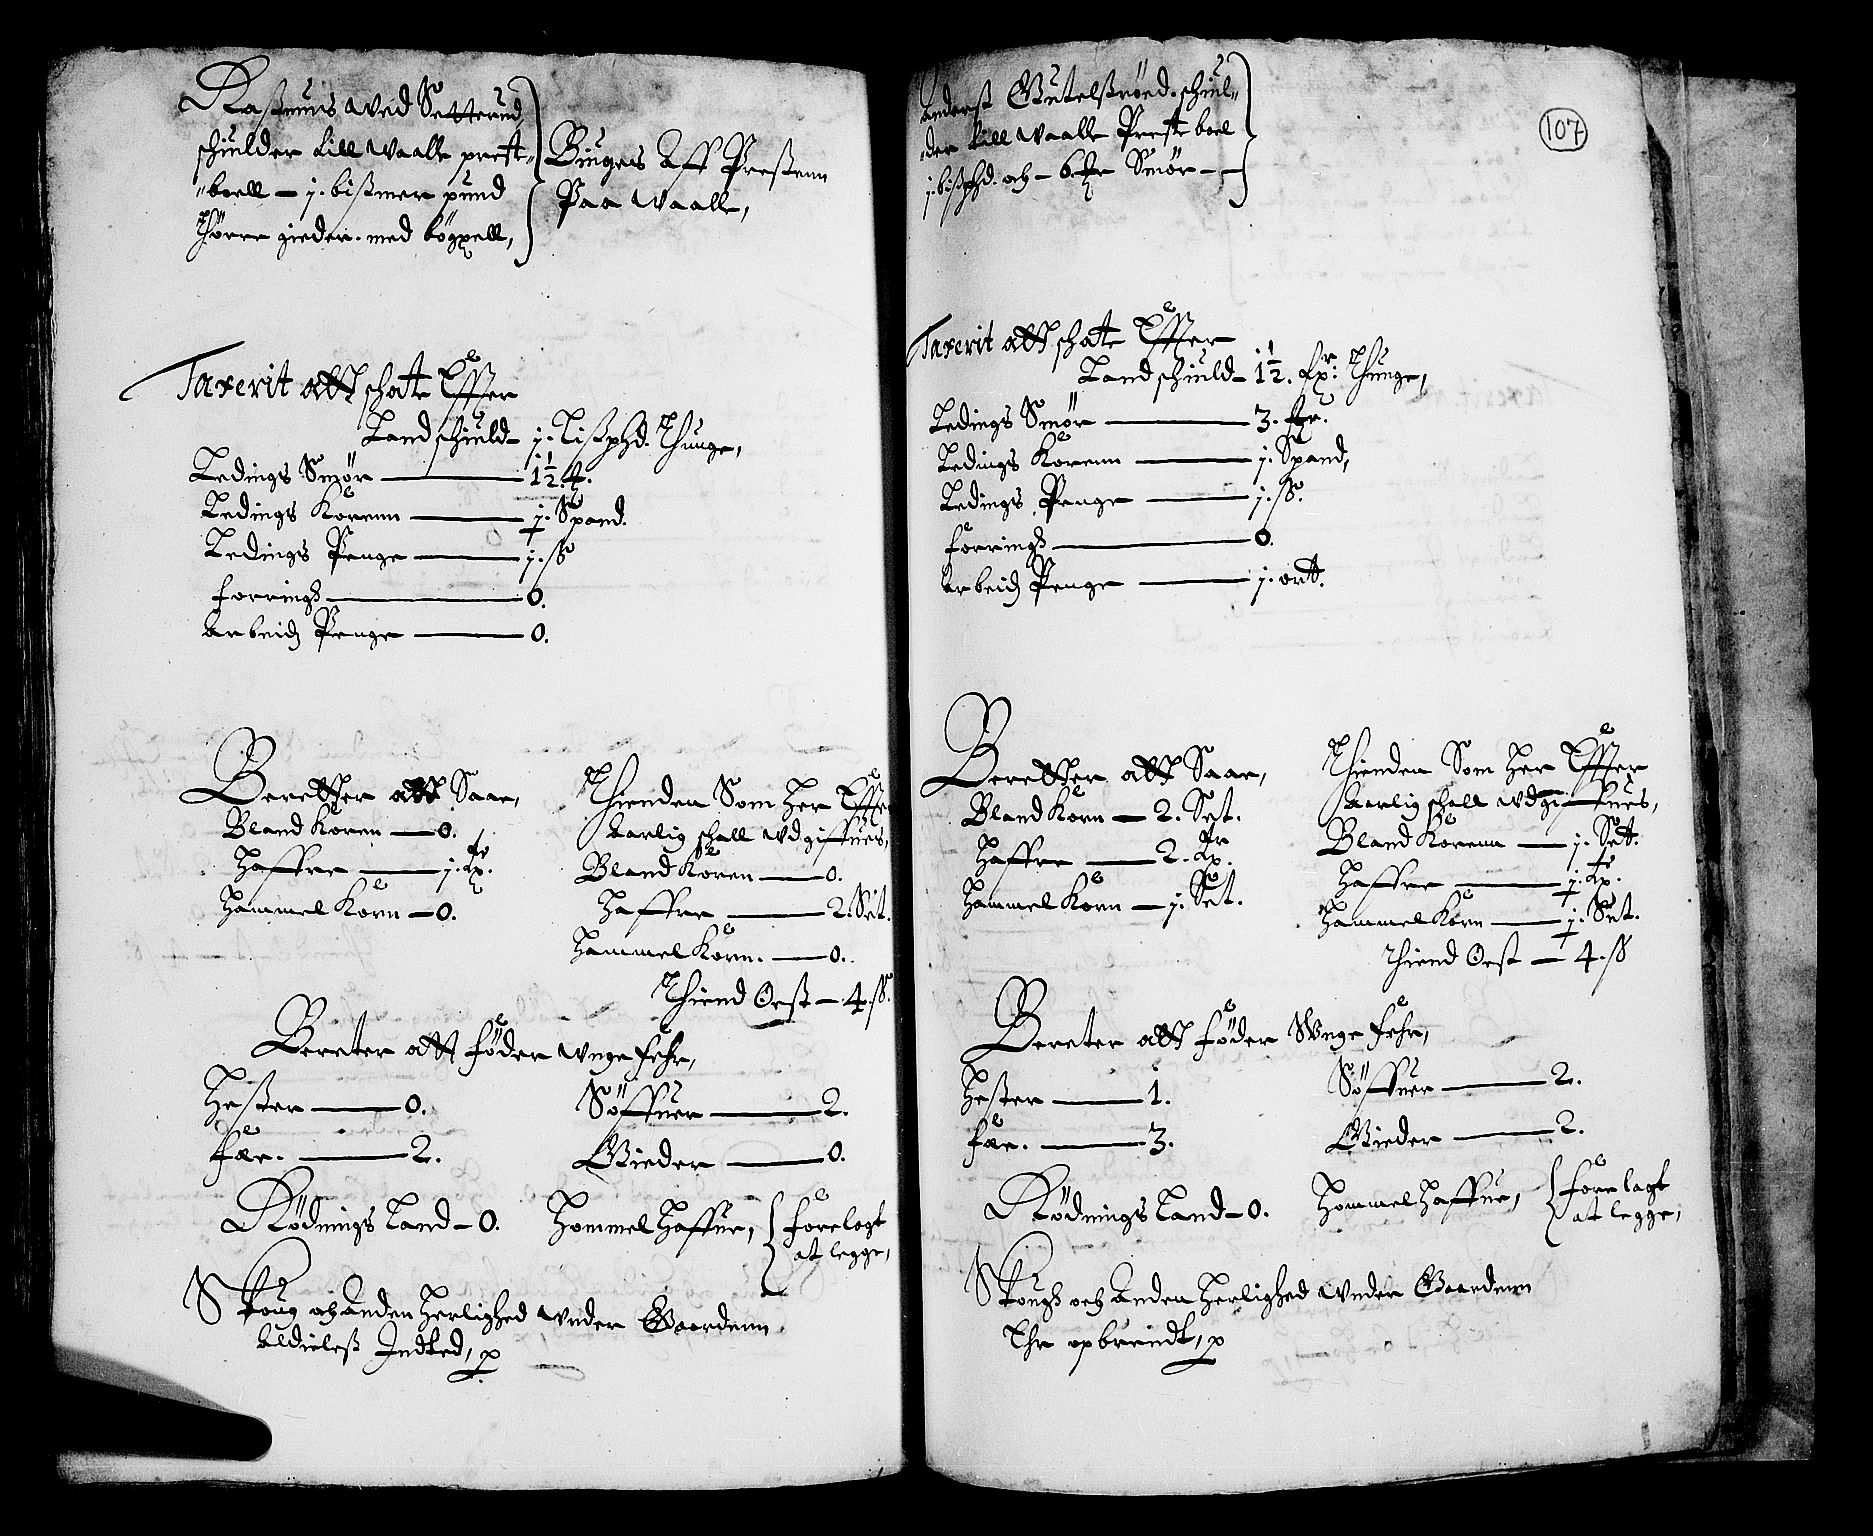 Rasmus wed Setterud
schiulder till Waalle prest-
-boell — j. bissmer pund
Thörre gieder. med bögxell,
Biuges Aff Presten
Paa Waalle,
Taxerit att schatte Effter
Landschiuld — j. Lisspd. Thunge,
Ledings Smör — 1½.
Ledings Korenn — j. Spand.
Ledings Penge — j. ß
forrings — 0.
Arbeids Penge — 0.
Beretther att Saae,
Bland Koren — 0.
Haffre — j.
Hammel Korn — 0.
Thienden Som her Effter
Aarlig schall wdgiffues,
Bland Koren — 0.
Haffre — 2. Set.
Hammel Korn. — 0.
Thiend Oest — 4. ß.
Bereter att föder wnge fehe,
Hester — 0.
fäe. — 2.
Söffuer — 2.
Gieder — 0.
Rödnings Land — 0.
Hommel Haffue, forelagt
at legge,
Skoug och Anden Herlighed wnder Gaardenn
Aldieless Indted,
Anderss schiul-
-der till Waalle Preste boel
j. bisspd. och — 6. Smör —
107
Taxerit att schatte Effter
Landschiuld — 1½. Thunge,
Ledings Smör — 3.
Ledings Korenn — j. Spand,
Ledings Penge — j. ß.
forrings — 0.
Arbeids Penge — j. ort.
Beretther att Saae,
Bland Korn — 2. Set.
Haffre — 2.
Hammel Korn — j. Set.
Thienden Som her Effter
Aarlig schall wdgiffues,
Bland Korenn — j. Set.
Haffre — j.
Hammel Korn — j. Set.
Thiend Oest — 4. ß
Bereter att föder Wnge fehe,
Hester — 1.
fäe. — 3.
Söffuer — 2.
Gieder — 2.
Rödnings Land — 0.
Hommel Haffue, forelagt
at legge,
Skougs och Anden Herlighed wnder Gaardenn
Ehr opbrendt,